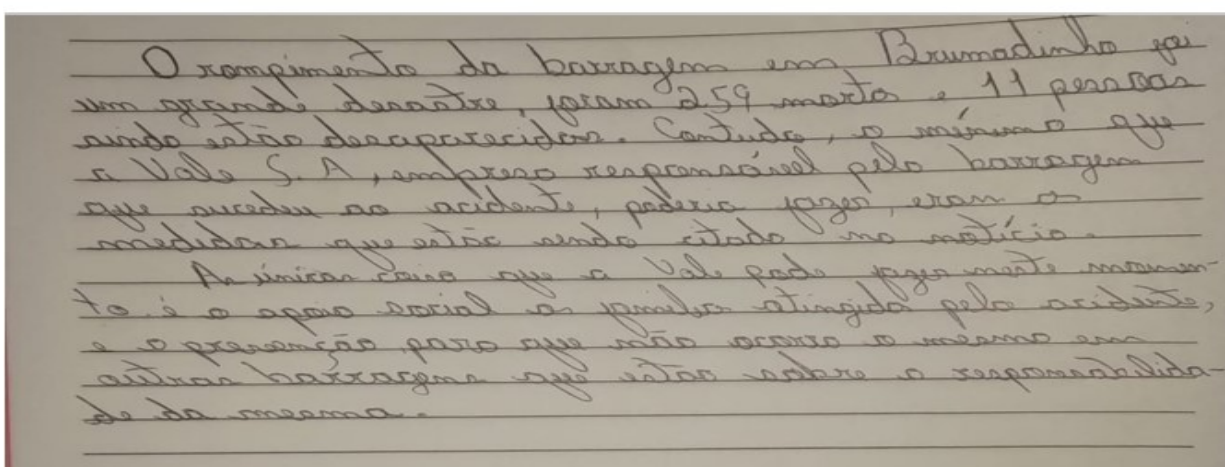 O rompimento da barragem em Brumadinho foi
um grande desastre, foram 259 mortos e 11 pessoas
ainda estão desaparecidas. Contudo, o mínimo que
a Vale S.A, empresa responsável pela barragem
que sucedeu ao acidente, poderia fazer, eram as
medidas que estão sendo citada na notícia.
As únicas coisa que a Vale pode fazer neste momen-
to é o apoio social as família atingida pelo acidente,
e a prevenção para que não ocorra o mesmo em
outras barragens que estão sobre a responsabilida-
de da mesma.